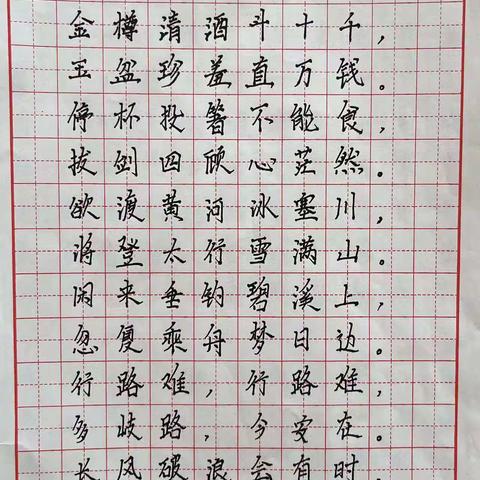 金樽清酒斗十千，
玉盆珍羞直万钱。
停杯投箸不能食，
拔剑四顾心茫然。
欲渡黄河冰塞川，
将登太行雪满山。
闲来垂钓碧溪上，
忽复乘舟梦日边。
行路难，行路难，
多歧路，今安在。
长风破浪会有时，